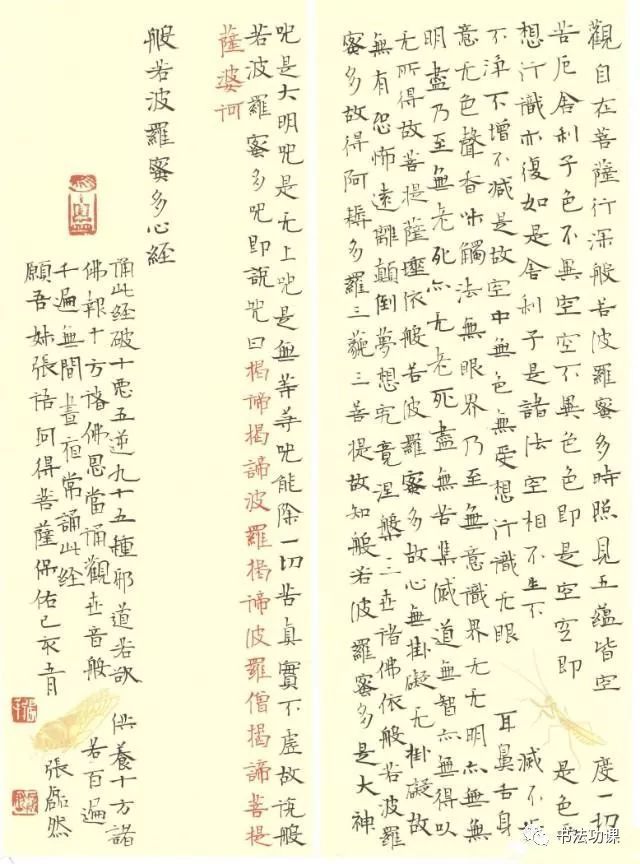 觀自在菩薩行深般若波羅蜜多時照見五蘊皆空 度一切
苦厄舍利子色不異空空不異色色即是空空即 是色
想行識亦復如是舍利子是諸法空相不生不 滅不
不淨不增不減是故空中無色無受想行識无眼 耳鼻舌身
意无色聲香味觸法無眼界乃至無意識界无无明亦無無
明盡乃至無老死亦无老死盡無苦集滅道無智亦無得以
无所得故菩提薩埵依般若波羅蜜多故心無掛礙无掛礙故
無有恐怖遠離顛倒夢想究竟涅槃三世諸佛依般若波羅
蜜多故得阿耨多羅三藐三菩提故知般若波羅蜜多是大神
咒是大明咒是无上咒是無等等咒能除一切苦真實不虛故說般
若波羅蜜多咒即說咒曰揭諦揭諦波羅揭諦波羅僧揭諦菩提
薩婆訶
般若波羅蜜多心經
誦此經破十惡五逆九十五種邪道若欲 供養十方諸
佛報十方諸佛恩當誦觀世音般 若百遍
千遍無間晝夜常誦此經
願吾妹張語珂得菩薩保佑己亥五月 張然
书法功课